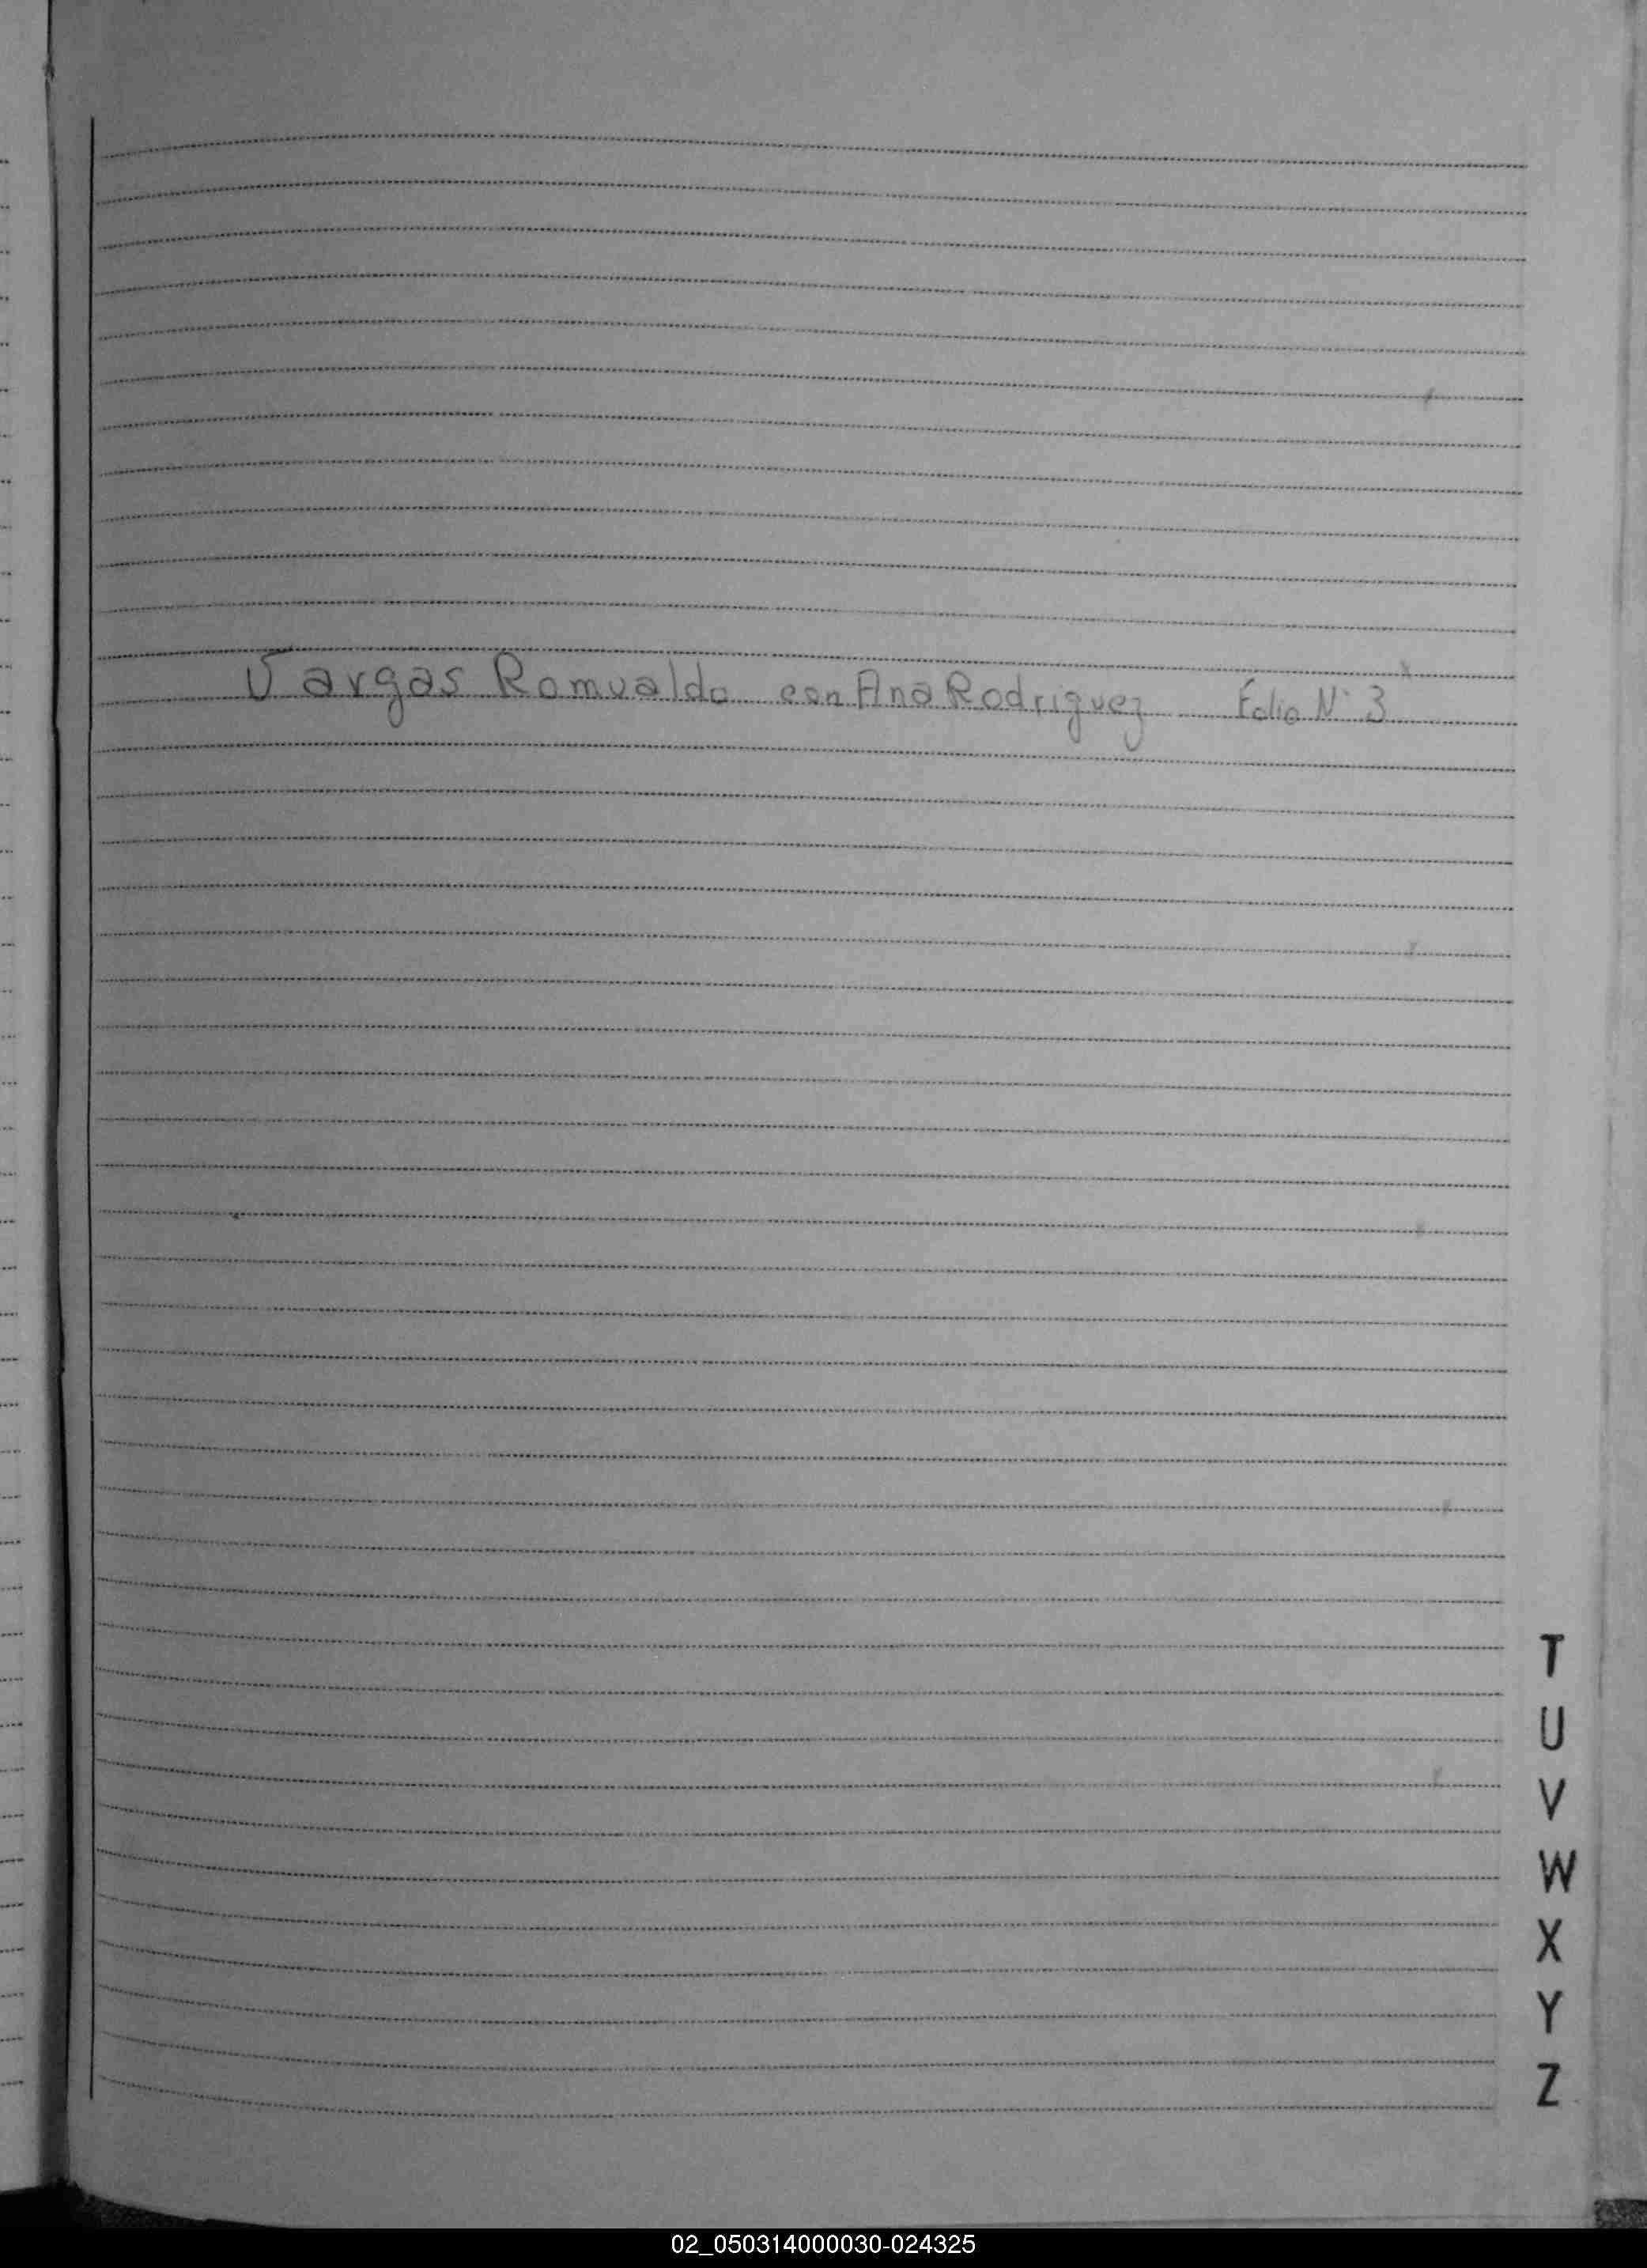 Vargas Romualdo con Ana Rodriguez Folio N° 3
T
U
V
W
X
Y
Z
02_050314000030-024325